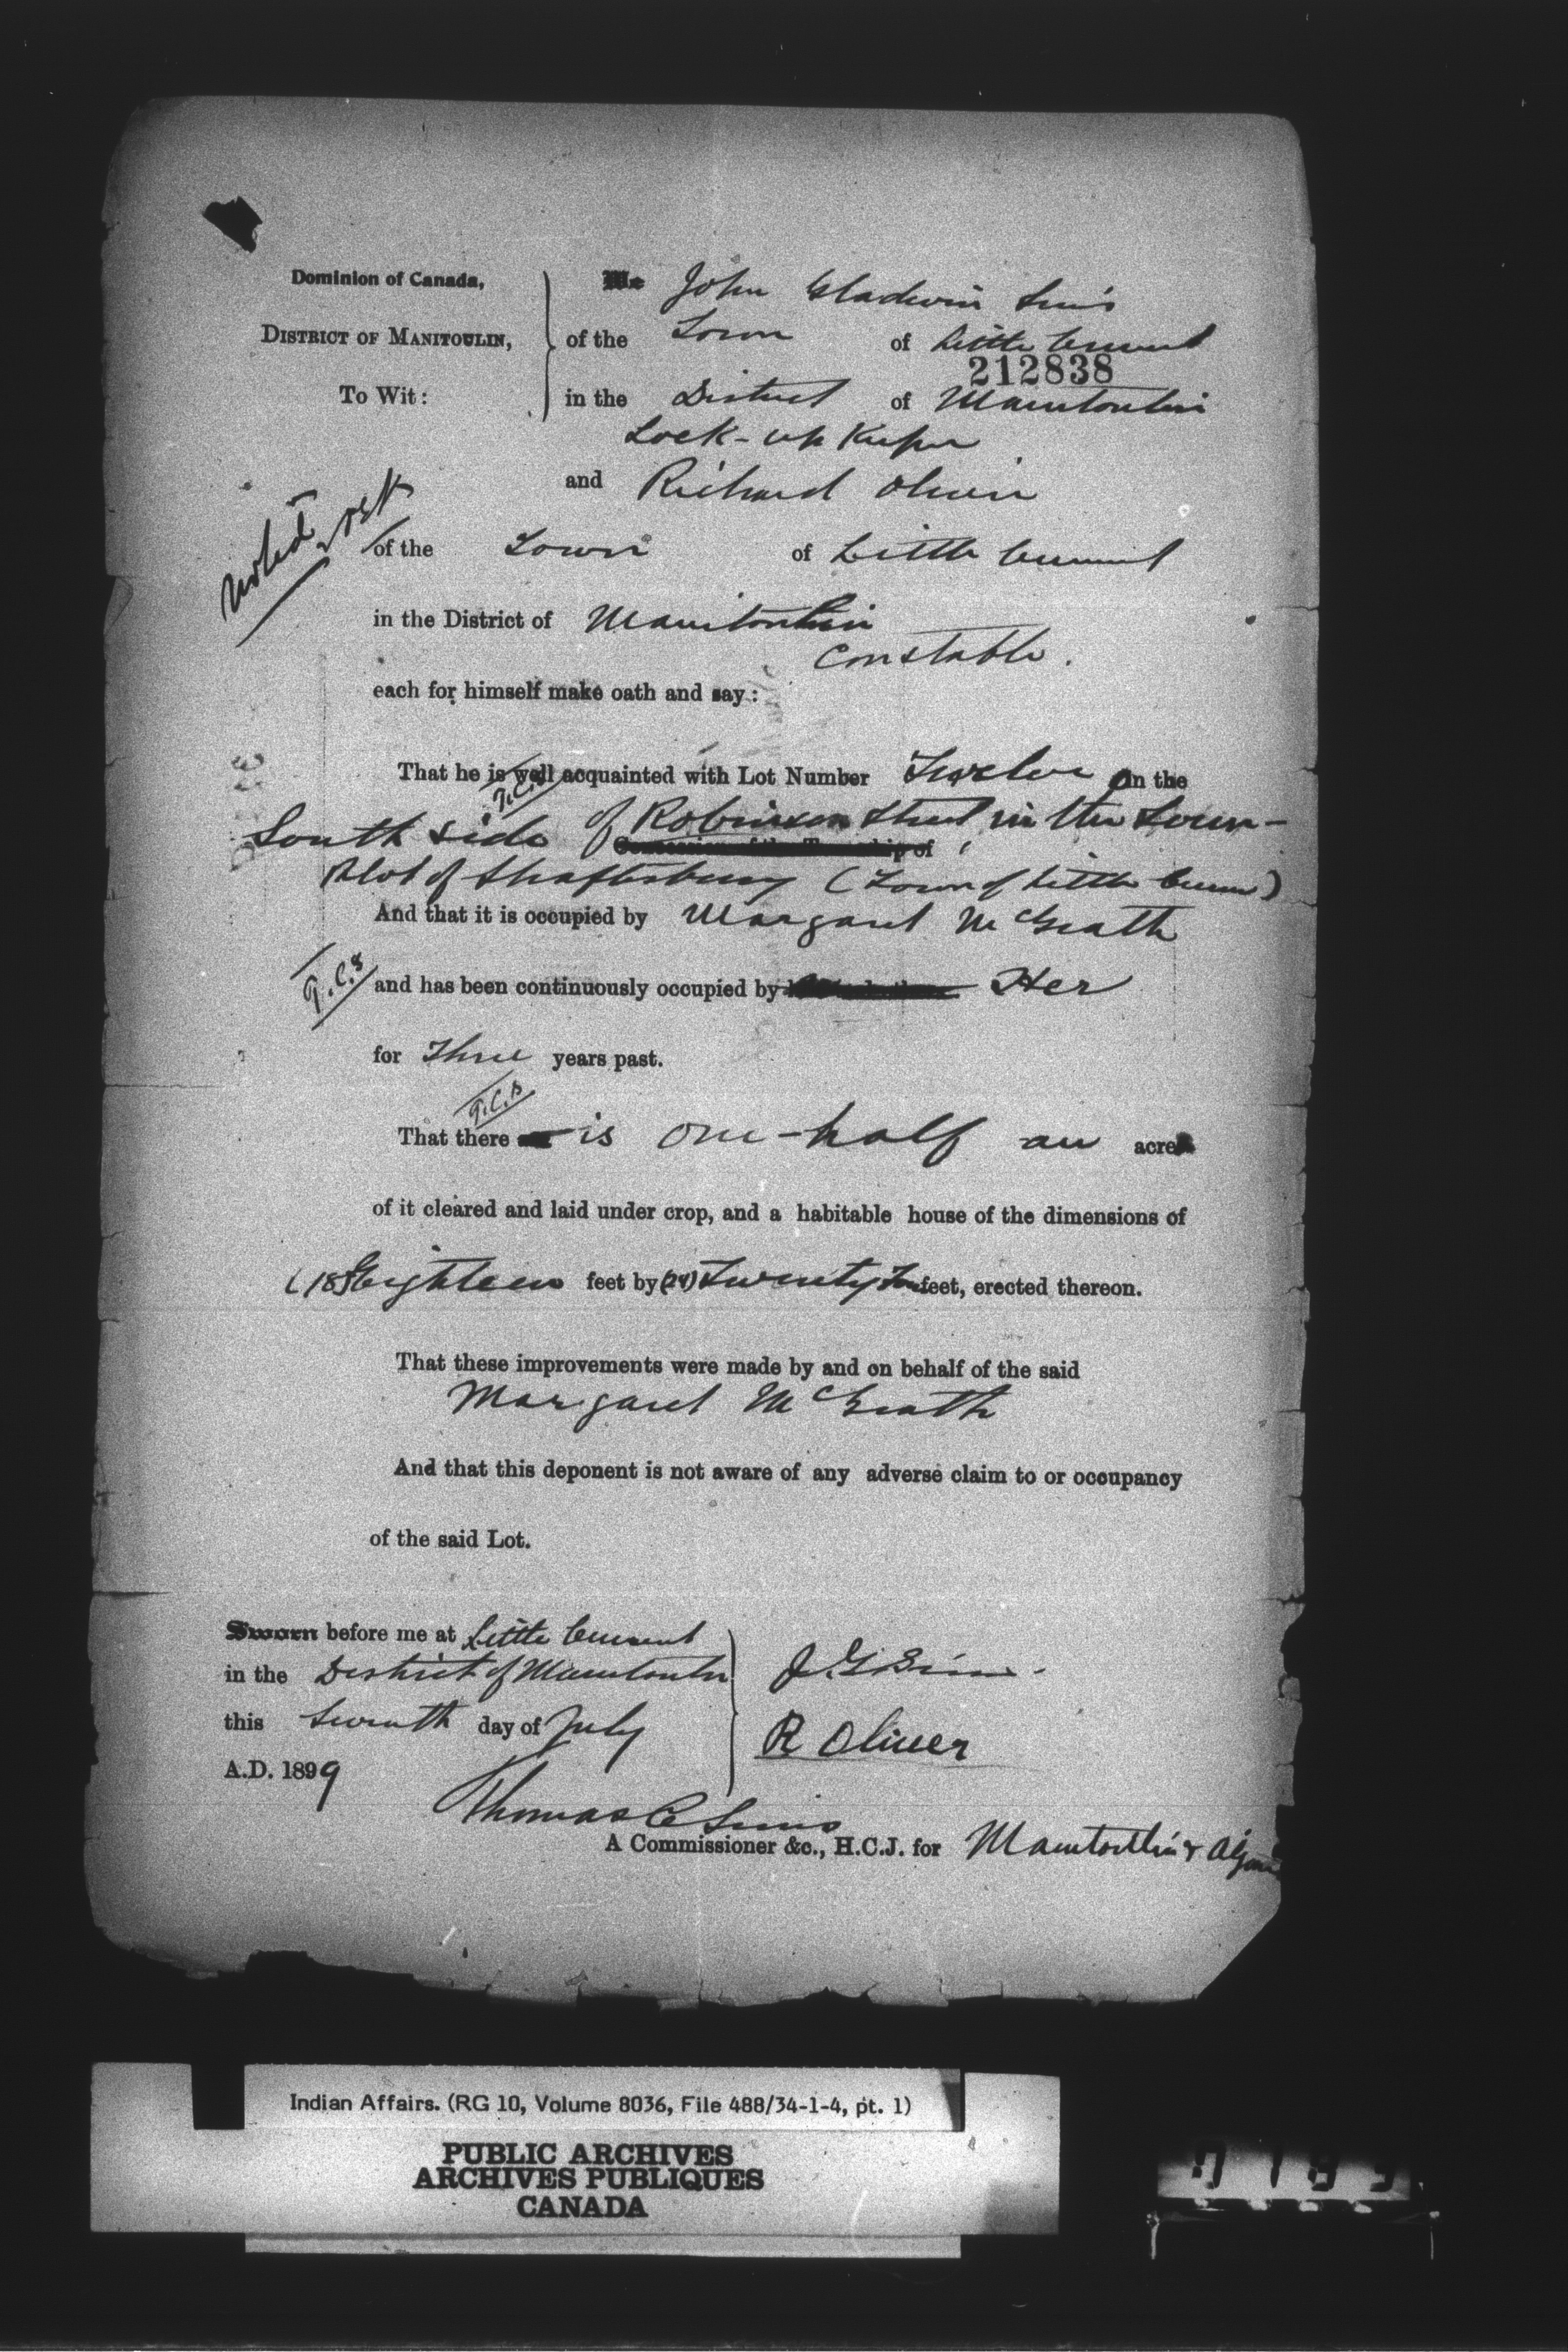 Dominion of Canada,
DISTRICT OF MANITOULIN,
To Wit:
We John Gladwin Sims
of the Town of Little Current
212838
in the District of Manitoulin
Lock-up Keeper
and Richard Oliver
Noted
of the Town of Little Current
in the District of Manitoulin
Constable.
each for himself make oath and say:
That he is well acquainted with Lot Number Twelve on the
T.C.S
South side of Robinson Street in the Town-
Concession of the Township of
Plot of Shaftesbury (Town of Little Current)
And that it is occupied by Margaret McGrath
T.C.S and has been continuously occupied by Her
for Three years past.
T.C.S
That there is one-half an acre
of it cleared and laid under crop, and a habitable house of the dimensions of
(18) Eighteen feet by (24) Twenty Four feet, erected thereon.
That these improvements were made by and on behalf of the said
Margaret McGrath
And that this deponent is not aware of any adverse claim to or occupancy
of the said Lot.
Sworn before me at Little Current
in the District of Manitoulin
this Seventh day of July
A.D. 1899
J. G Sims
R Oliver
Thomas C Sims
A Commissioner &c., H.C.J. for Manitoulin & Algoma
Indian Affairs. (RG 10, Volume 8036, File 488/34-1-4, pt. 1)
PUBLIC ARCHIVES
ARCHIVES PUBLIQUES
CANADA